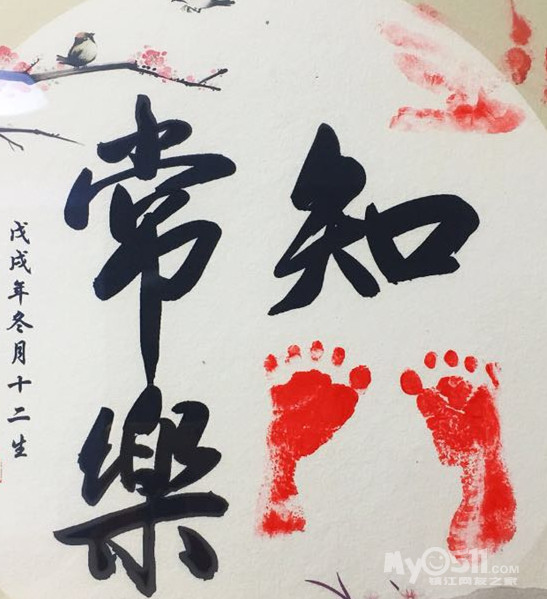 知
常樂
戊戌年冬月十二生
My0511.COM
镇江网友之家